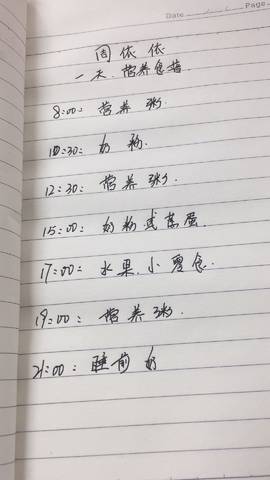 Date
Page
周依依
一天.营养食谱
8:00: 营养粥.
10:30: 奶粉.
12:30: 营养粥.
15:00: 奶粉或蒸蛋.
17:00: 水果.小零食.
19:00: 营养粥.
21:00: 睡前奶